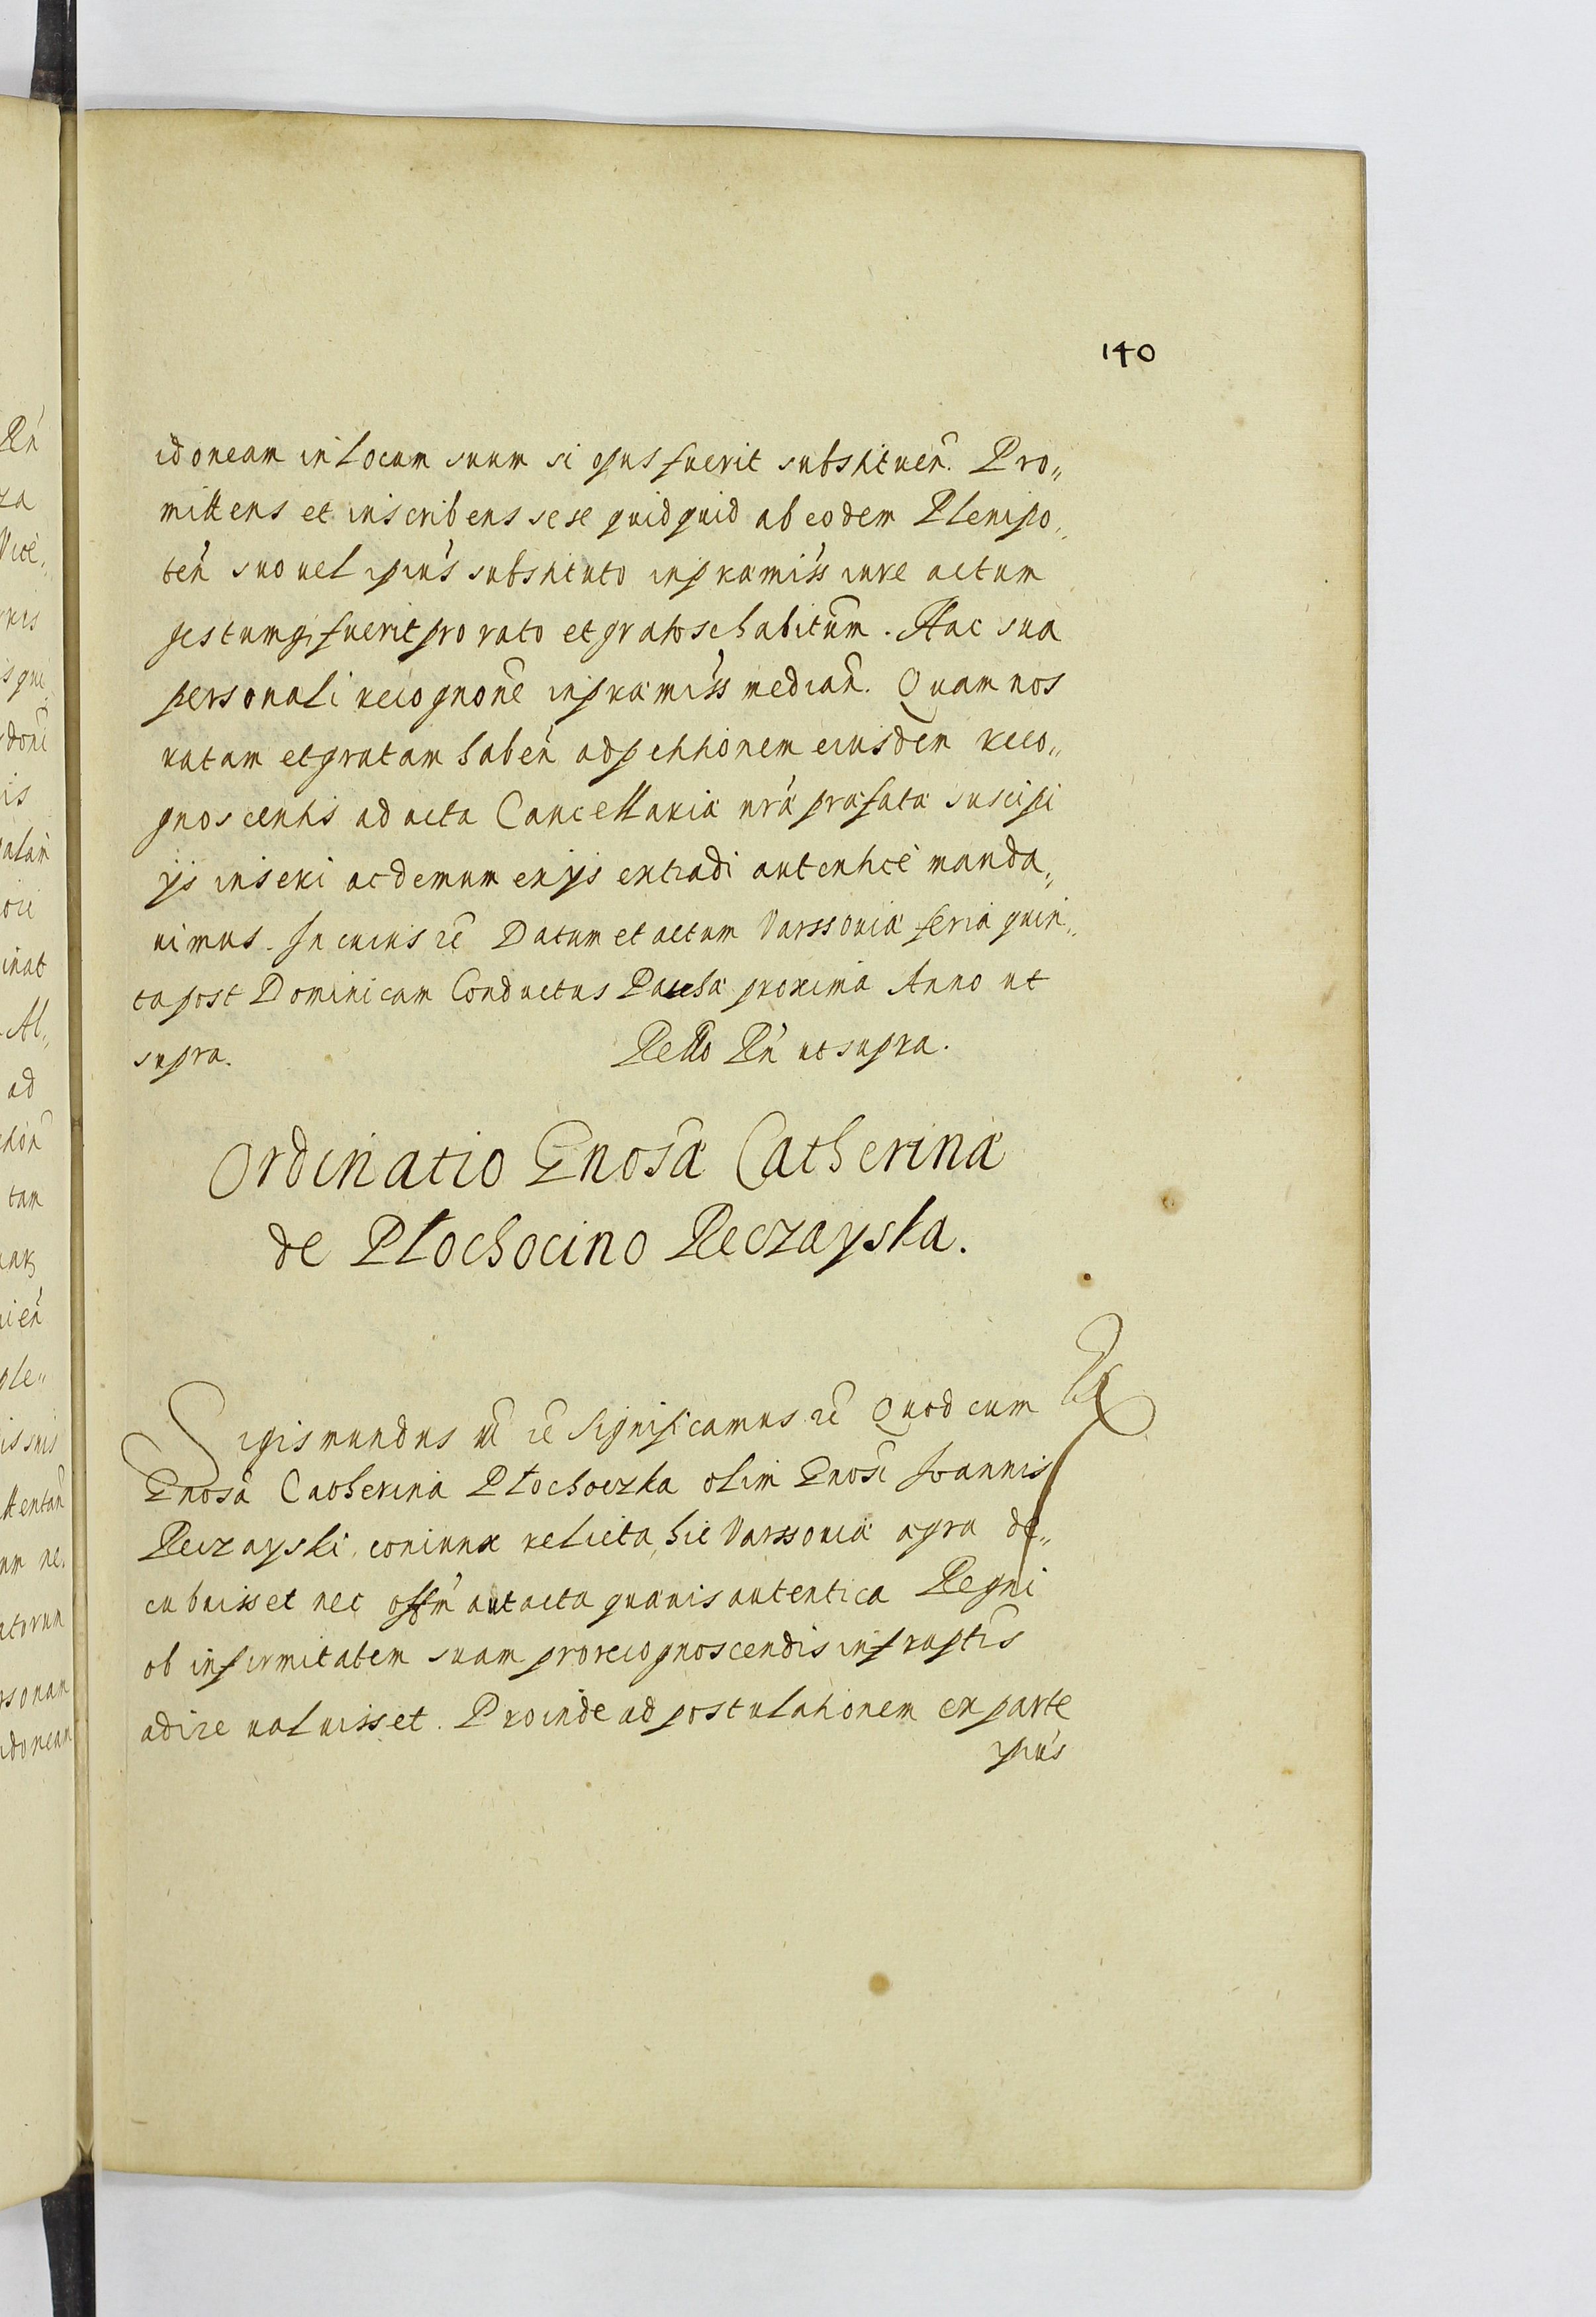 140
idoneam in locum suum si opus fuerit substituen̄. Pro„
mittens et inscribens sese quidquid ab eodem Plenipo„
ten̄ suo uel ipiūs substituto in præmiss̄ iure actum
gestumq; fuerit pro rato et grato se habitūm. Hac sua
personali recognon̄e in præmiss̄ median̄. Quam nos
ratam et gratam haben̄ ad petitionem eiusdem reco„
gnoscentis ad acta Cancellariæ nr̄æ præfatæ suscipi
ijs inseri ac demum ex ijs extradi autenticè manda„
uimus. In cuius rē Datum et actum Varssouiæ feria quin„
ta post Dominicam Conductus Paschæ proxima Anno ut
supra.
Rello R̄n ut supra.
Ordinatio Gnosæ Catherinæ
de Płochocino Reczayska.
Sigismundus m̄ rē Significamus rē Quod cum
Gnosā Catherina Płochoczka olim Gnosī Joannis
Reczayski, coniunx relicta, hic Varssouiæ ægra de„
cubuisset nec offm̄ aut acta quæuis autentica Regni
ob infirmitatem suam pro recognoscendis infraptīs
adire ualuisset. Proinde ad postulationem ex parte
ipiūs